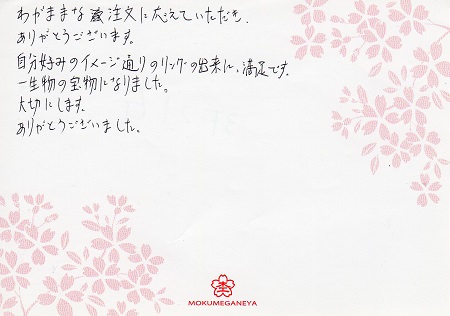 わがままな注文に応えていただき、
ありがとうございます。
自分好みのイメージ通りのリングの出来に、満足です。
一生物の宝物になりました。
大切にします。
ありがとうございました。
MOKUMEGANEYA